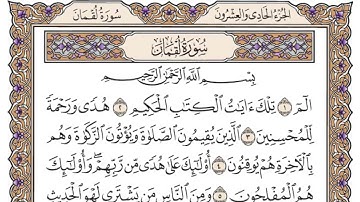 سُورَةُ لُقْمَانَ
الجُزْءُ الحَادِي وَالعِشْرُونَ
سُورَةُ لُقْمَانَ
بِسْمِ اللَّهِ الرَّحْمَٰنِ الرَّحِيمِ
الٓمٓ ١ تِلْكَ ءَايَٰتُ ٱلْكِتَٰبِ ٱلْحَكِيمِ ٢ هُدًى وَرَحْمَةً
لِّلْمُحْسِنِينَ ٣ ٱلَّذِينَ يُقِيمُونَ ٱلصَّلَوٰةَ وَيُؤْتُونَ ٱلزَّكَوٰةَ وَهُم
بِٱلْءَاخِرَةِ هُمْ يُوقِنُونَ ٤ أُوْلَٰٓئِكَ عَلَىٰ هُدًى مِّن رَّبِّهِمْ ۖ وَأُوْلَٰٓئِكَ
هُمُ ٱلْمُفْلِحُونَ ٥ وَمِنَ ٱلنَّاسِ مَن يَشْتَرِى لَهْوَ ٱلْحَدِيثِ